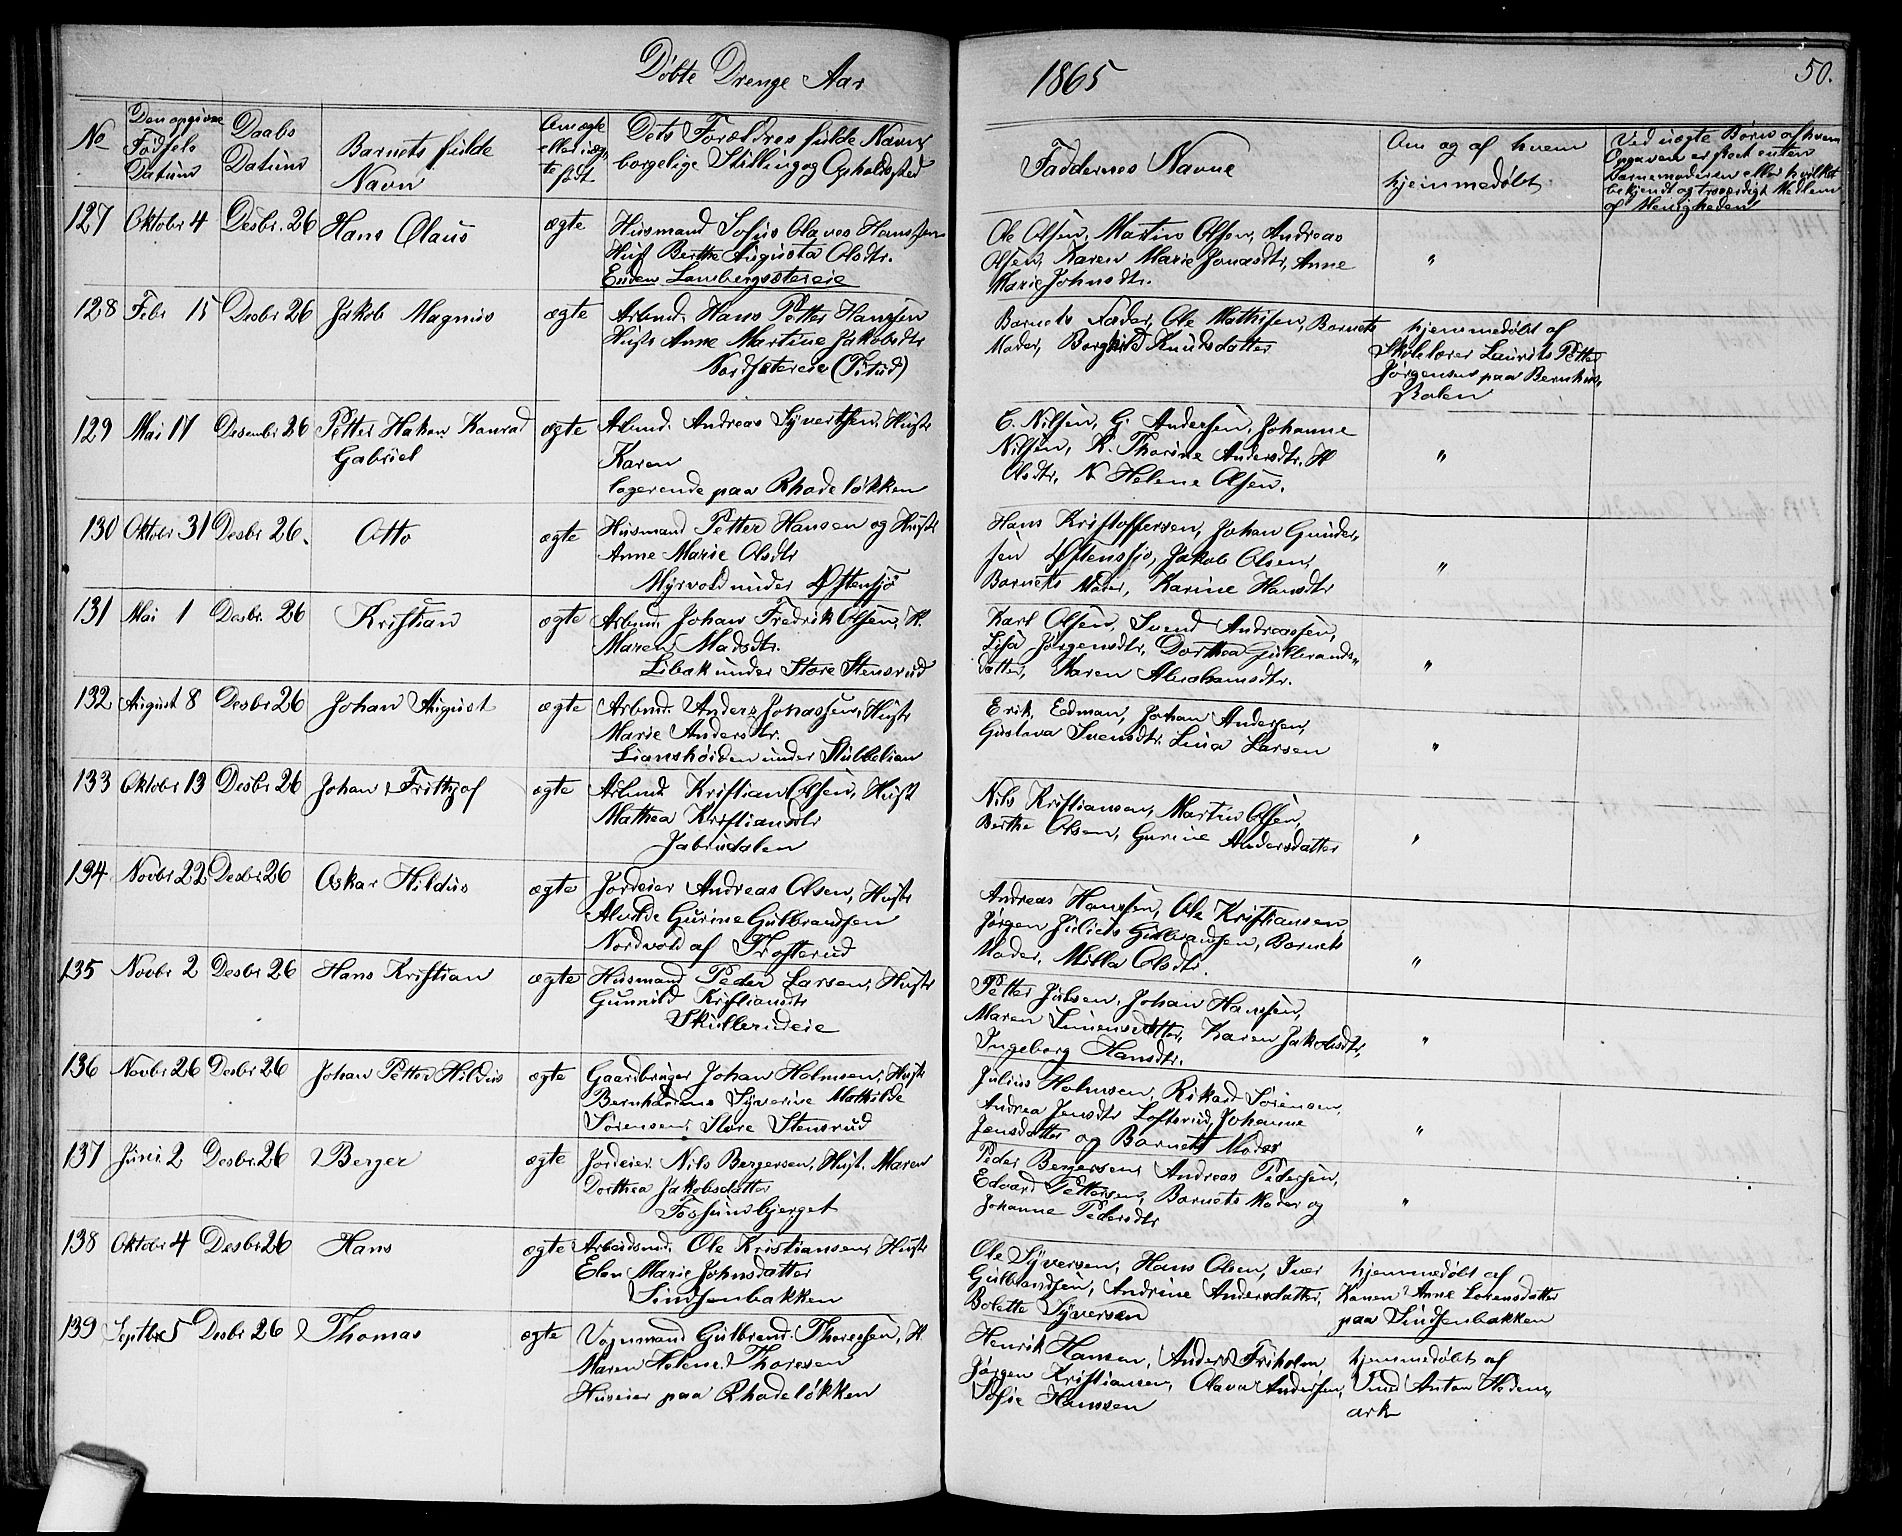 Døbte Drenge Aar 1865
50.
No
Den opgivne Fødsels Datum
Daabs Datum
Barnets fulde Navn
Om ægte eller uægte født
Dets Forældres fulde Navn, borgelige Stilling og Opholdssted
Faddernes Navne
Om og af hvem hjemmedøbt
Ved uægte Børn af hvem Opgaven er skeet enten Barnemoderen eller hvilket bekjendt og troværdigt Medlem af Menigheden
127 Oktobr 4 Desbr. 26 Hans Olaus ægte Husmand Sofus Olaves Hanssen
Hust Berthe Augusta Olsdtr.
Enden Lansbergsetereie
Ole Olsen, Martin Olsen, Andreas
Olsen, Karen Marie Jonasdtr, Anne
Marie Johnsdtr.
"
128 Febr 15 Desbr 26 Jakob Magnus ægte Arbmd. Hans Petter Hansen
Hustr Anne Martine Jakobsdtr
Nordsetereie
Barnets Fader, Ole Mathisen, Barnets
Moder, Borghild Knudsdatter
hjemmedøbt af
Skolelærer Laurits Petter
Jørgensen paa Bernhus
Skolen
129 Mai 17 Desembr 26 Petter Hakon Konrad
Gabriel
ægte Arbmd. Andreas Syvertsen, Hustr
Karen
logerende paa Rhodeløkken
E. Nilsen, G. Andersen, Johanne
Nilsen, K. Thorine Andersdtr. H
Olsdtr, N Helene Olsen.
"
130 Oktobr 31 Desbr 26. Otto ægte Husmand Petter Hansen og Hustr
Anne Marie Olsdtr
Myrvold under Østensjø
Hans Kristoffersen, Johan Gunder-
sen Østensjø, Jakob Olsen,
Barnets Moder, Karine Hansdtr
"
131 Mai 1 Desbr. 26 Kristian ægte Arbmd. Johan Fredrik Olsen, H.
Maren Madsdtr.
Libak under Store Stensrud
Karl Olsen, Svend Andreassen,
Lisa Jørgensdtr, Dorthea Gulbrands-
datter, Karen Abrahamsdtr.
"
132 August 8 Desbr 26 Johan August ægte Arbmd. Anders Jonassen, Hustr
Marie Andersdtr.
Lianshøiden under Stubbelian
Erik Edman, Johan Andersen,
Gustava Svensdtr. Lina Larsen
"
133 Oktobr 13 Desbr 26 Johan Frithjof ægte Arbmd. Kristian Olsen, Hust
Mathea Kristiansdtr
Jabrudalen
Nils Kristiansen, Martin Olsen,
Berthe Olsen, Gurine Andersdatter
"
134 Novbr 22 Desbr. 26 Oskar Hildus ægte Jordeier Andreas Olsen, Hustr
Alvilde Gurine Gulbrandsen
Nordvold af Trosterud
Andreas Hanssen, Ole Kristiansen
Jørgen Julius Gulbrandsen, Barnets
Moder, Milla Olsdtr.
"
135 Novbr 2 Desbr 26 Hans Kristian ægte Husmand Peder Larsen, Hustr
Gunnild Kristiansdtr
Skullerudeie
Petter Julsen, Johan Hanssen,
Maren Simensdatter, Karen Jakobsdtr,
Ingeborg Hansdtr.
"
136 Novbr 26 Desbr 26 Johan Petter Hildus ægte Gaardbruger Johan Holmsen, Hustr
Bernhardine Syverine Mathilde
Sørensen, Store Stensrud
Julius Holmsen, Rikard Sørensen,
Andrea Jensdtr Loftsrud, Johanne
Jensdatter og Barnets Moder
"
137 Juni 2 Desbr. 26 Berger ægte Jordeier Nils Bergersen, Hust. Maren
Dorthea Jakobsdatter
Fossumbjerget
Peder Bergersen, Andreas Pedersen,
Edvard Pettersen, Barnets Moder og
Johanne Pedersdtr
"
138 Oktobr 4 Desbr. 26 Hans ægte Arbeidsmd. Ole Kristiansen, Hustr
Elen Marie Johnsdatter
Simsenbakken
Ole Syversen, Hans Olsen, Iver
Gulbrandsen, Andrine Andersdatter,
Bolette Syversen
hjemmedøbt af
Konen Anne Lorensdatter
paa Simsenbakken
139 Septbr 5 Desbr 26 Thomas ægte Vognmand Gulbrand Thoresen, H.
Maren Helene Thoresen
Huseier paa Rhodeløkken
Henrik Hansen, Anders Friholm,
Jørgen Kristiansen, Olava Andersen,
Sofie Hanssen
hjemmedøbt af
Smed Anton Heden-
ark